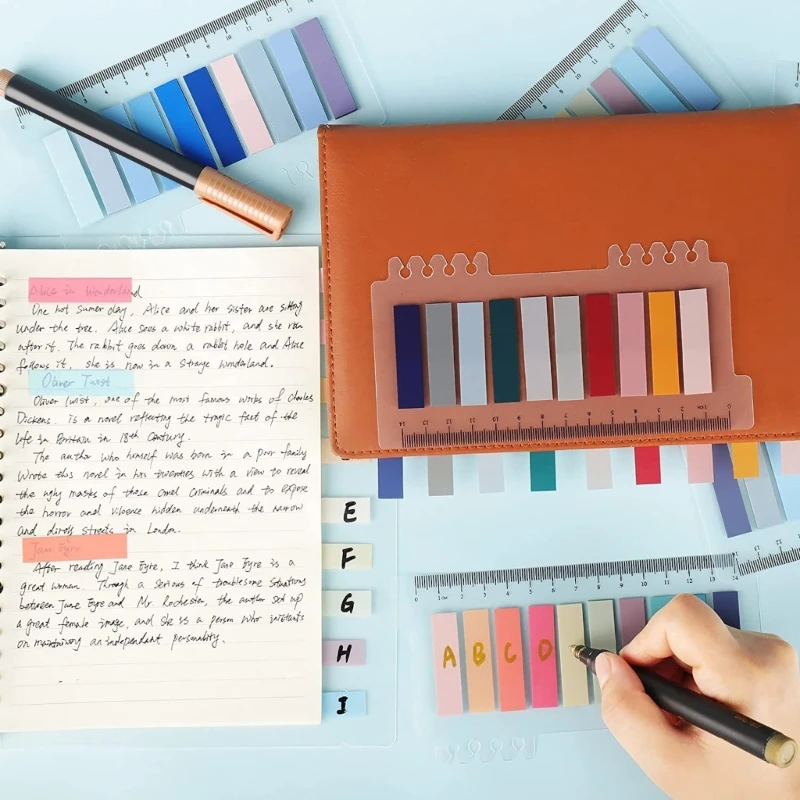 Alice in Wonderland
One hot sumer day, Alice and her sister are sitting
under the tree. Alice sees a white rabbit, and she run
after it. The rabbit goes down a rabbit hole and Alice
follows it, she is now in a strage wonderland.
Oliver Twist
Oliver Twist, one of the most famous works of Charles
Dickens. Is a novel reflecting the tragic fact of the
life in Britain in 18th Century.
The author who himself was born in a poor family
wrote this novel in his twenties with a view to reveal
the ugly masks of those cruel criminals and to expose
the horror and violence hidden underneath the narrow
and streets in London.
Jane Eyre
After reading Jane Eyre, I think Jane Eyre is a
great woman. Through a serious of troublesome situations
between Jane Eyre and Mr. Rochester, the author set up
a great female image, and she is a person who
on an independant personality.
E
F
G
H
I
A B C D